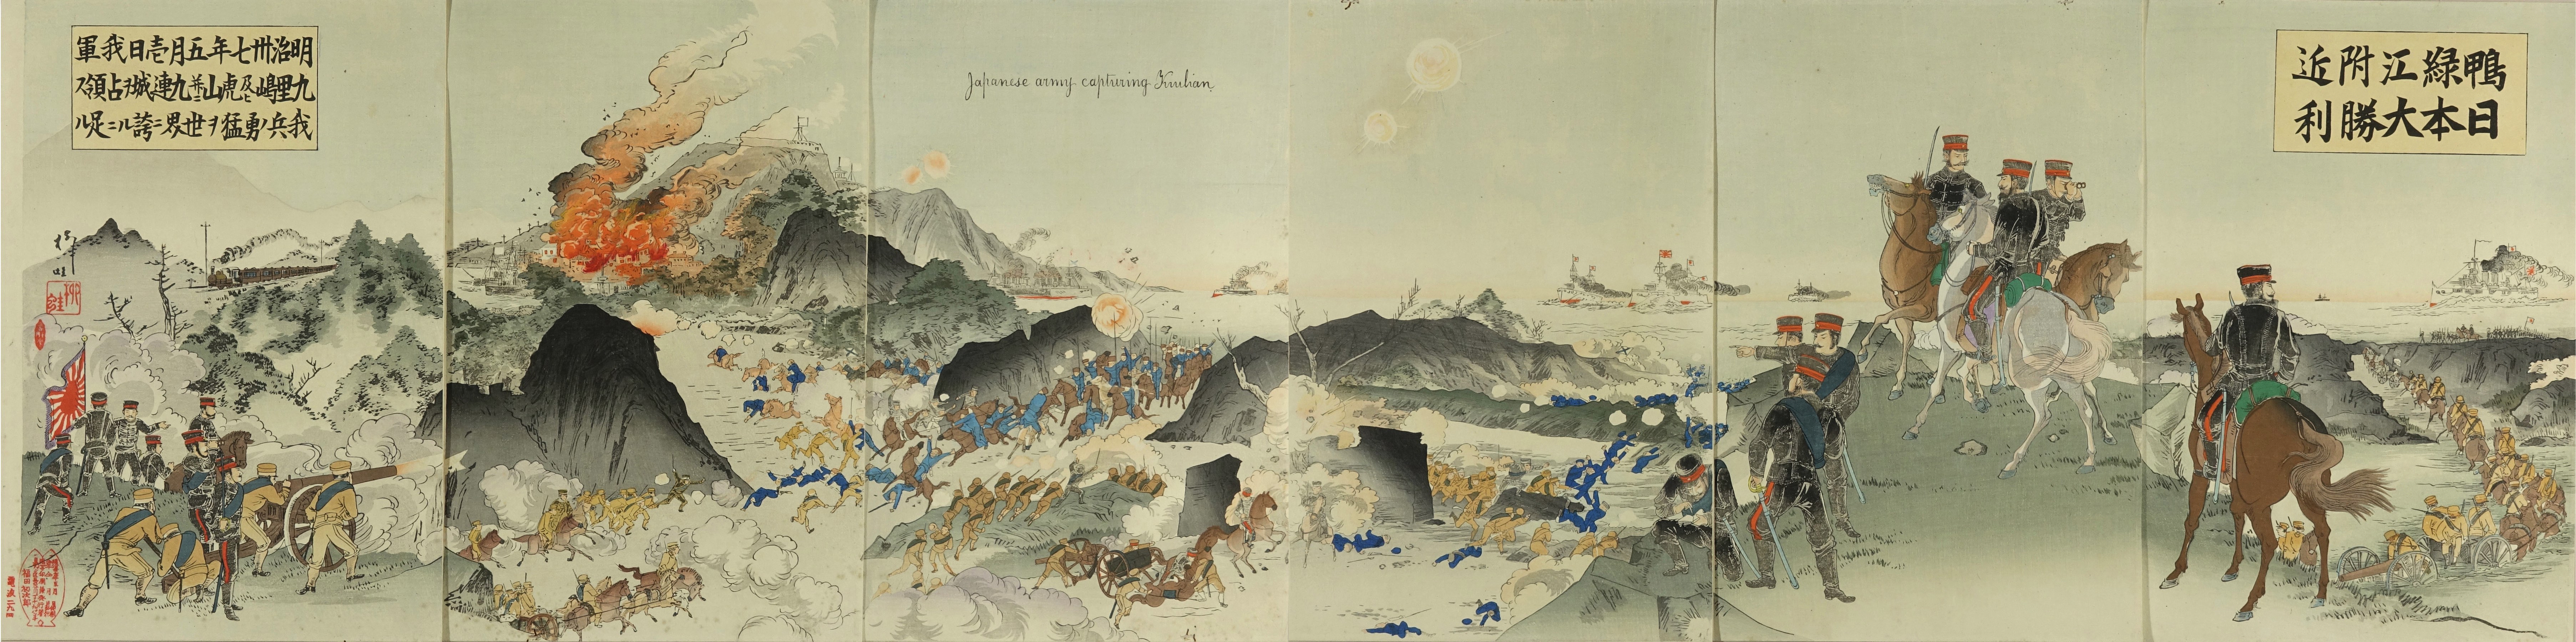 鴨緑江附近
日本大勝利
Japanese army capturing Kiulian.
明治卅七年五月壱日我軍
九里嶋及ヒ虎山並ニ九連城ヲ占領ス
我兵ノ勇猛ヲ世界ニ誇ルニ足ル